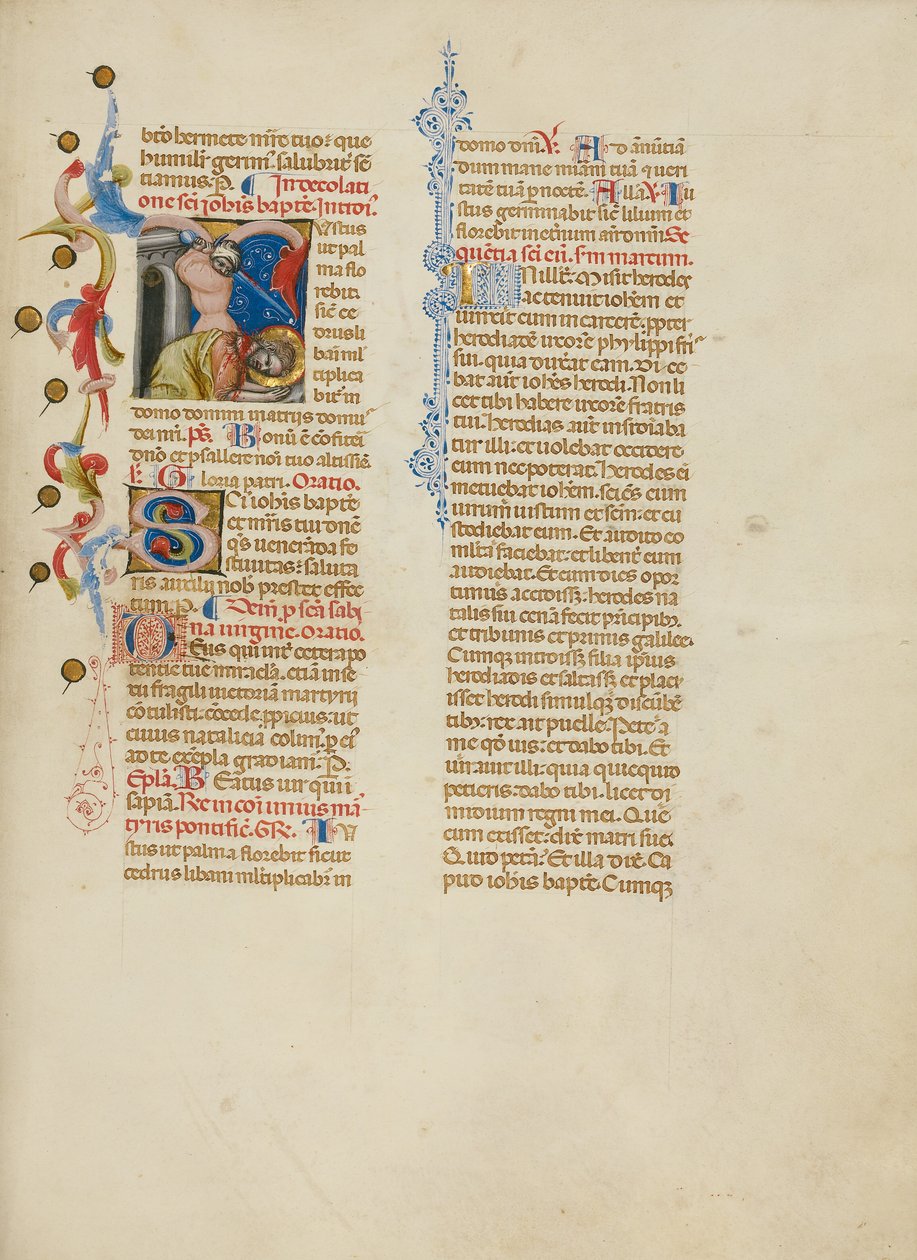 bto hermete mr̄e tuo: que
humilr̄ germ̄. salubrit̄ sē
tiamus. P. In decolati
one sc̄i ioh̄is bapt̄e. Introi?.
Ustus
ut pal
ma flo
rebit.
sic̄ ce
drus li
bani ml̄
tiplica
bit̄ in
domo domini in atriis domu?
dei nr̄i. p̄s. Bonū ē cōfitei
dn̄o et psallere noī tuo altissie.
V. Gloria patri. Oratio.
SC̄i ioh̄is bapt̄e
et mr̄is tui dn̄e
qs̄ ueneranda fe
stiuitas: saluta
ris auxilii nob̄ prestet effec
tum. P. Dem̄ p sc̄a sabi
na uirgine. Oratio.
Deus qui int̄ cetera po
tentie tue miracl̄a. etiā in se
xu fragili uictoriā martyrii
cōtulisti. cōcede ppicius: ut
cuius natalicia colim? p ei?
ad te exēpla gradiam̄. P.
Epl̄a. Beatus uir qui ī
sapiā. Re in cōi unius mā
tyris pontific̄. GR. Iu
stus ut palma florebit sicut
cedrus libani ml̄tiplicabit̄ in
domo dn̄i. V. Ad ānūtiā
dum mane miām tuā et ueri
tatē tuā p noctē. Alla. V. Iu
stus germinabit sic̄ lilium et
florebit in eternum an̄ dom̄. Se
quētia sc̄i eū. s̄m marcum.
IN ill̄ t̄. Misit herodes
ac tenuit ioh̄em et
uinxit eum in carcere. ppter
herodiadē uxorē phylippi fr̄is
sui. quia duxerat eam. Di ce
bat aut̄ ioh̄es herodi. Non li
cet tibi habere uxorē fratris
tui. Herodias aut̄ insidiaba
tur illi: et uolebat occidere
eum nec poterat. Herodes ei
metuebat ioh̄em. sciēs eum
uirum iustum et sc̄m: et cu
stodiebat eum. Et audito eo
ml̄ta faciebat: et libent̄ eum
audiebat. Et cum dies opor
tunus accidiss̄: herodes na
talis sui cenā fecit principib?
et tribunis et primis galilee.
Cumq introiss̄ filia ipius
herodiadis et saltass̄ et placu
isset herodi simulq discūbē
tib?: rex ait puelle. Pete a
me qd̄ uis: et dabo tibi. Et
iurauit illi: quia quicquid
petieris. dabo tibi. licet di
midium regni mei. Que
cum exisset: dix̄ matri sue.
Quid petā? Et illa dix̄. Ca
pud ioh̄is bapt̄e. Cumq